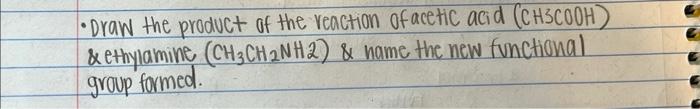 • Draw the product of the reaction of acetic acid (CH3COOH)
& ethylamine (CH3CH2NH2) & name the new functional
group formed.